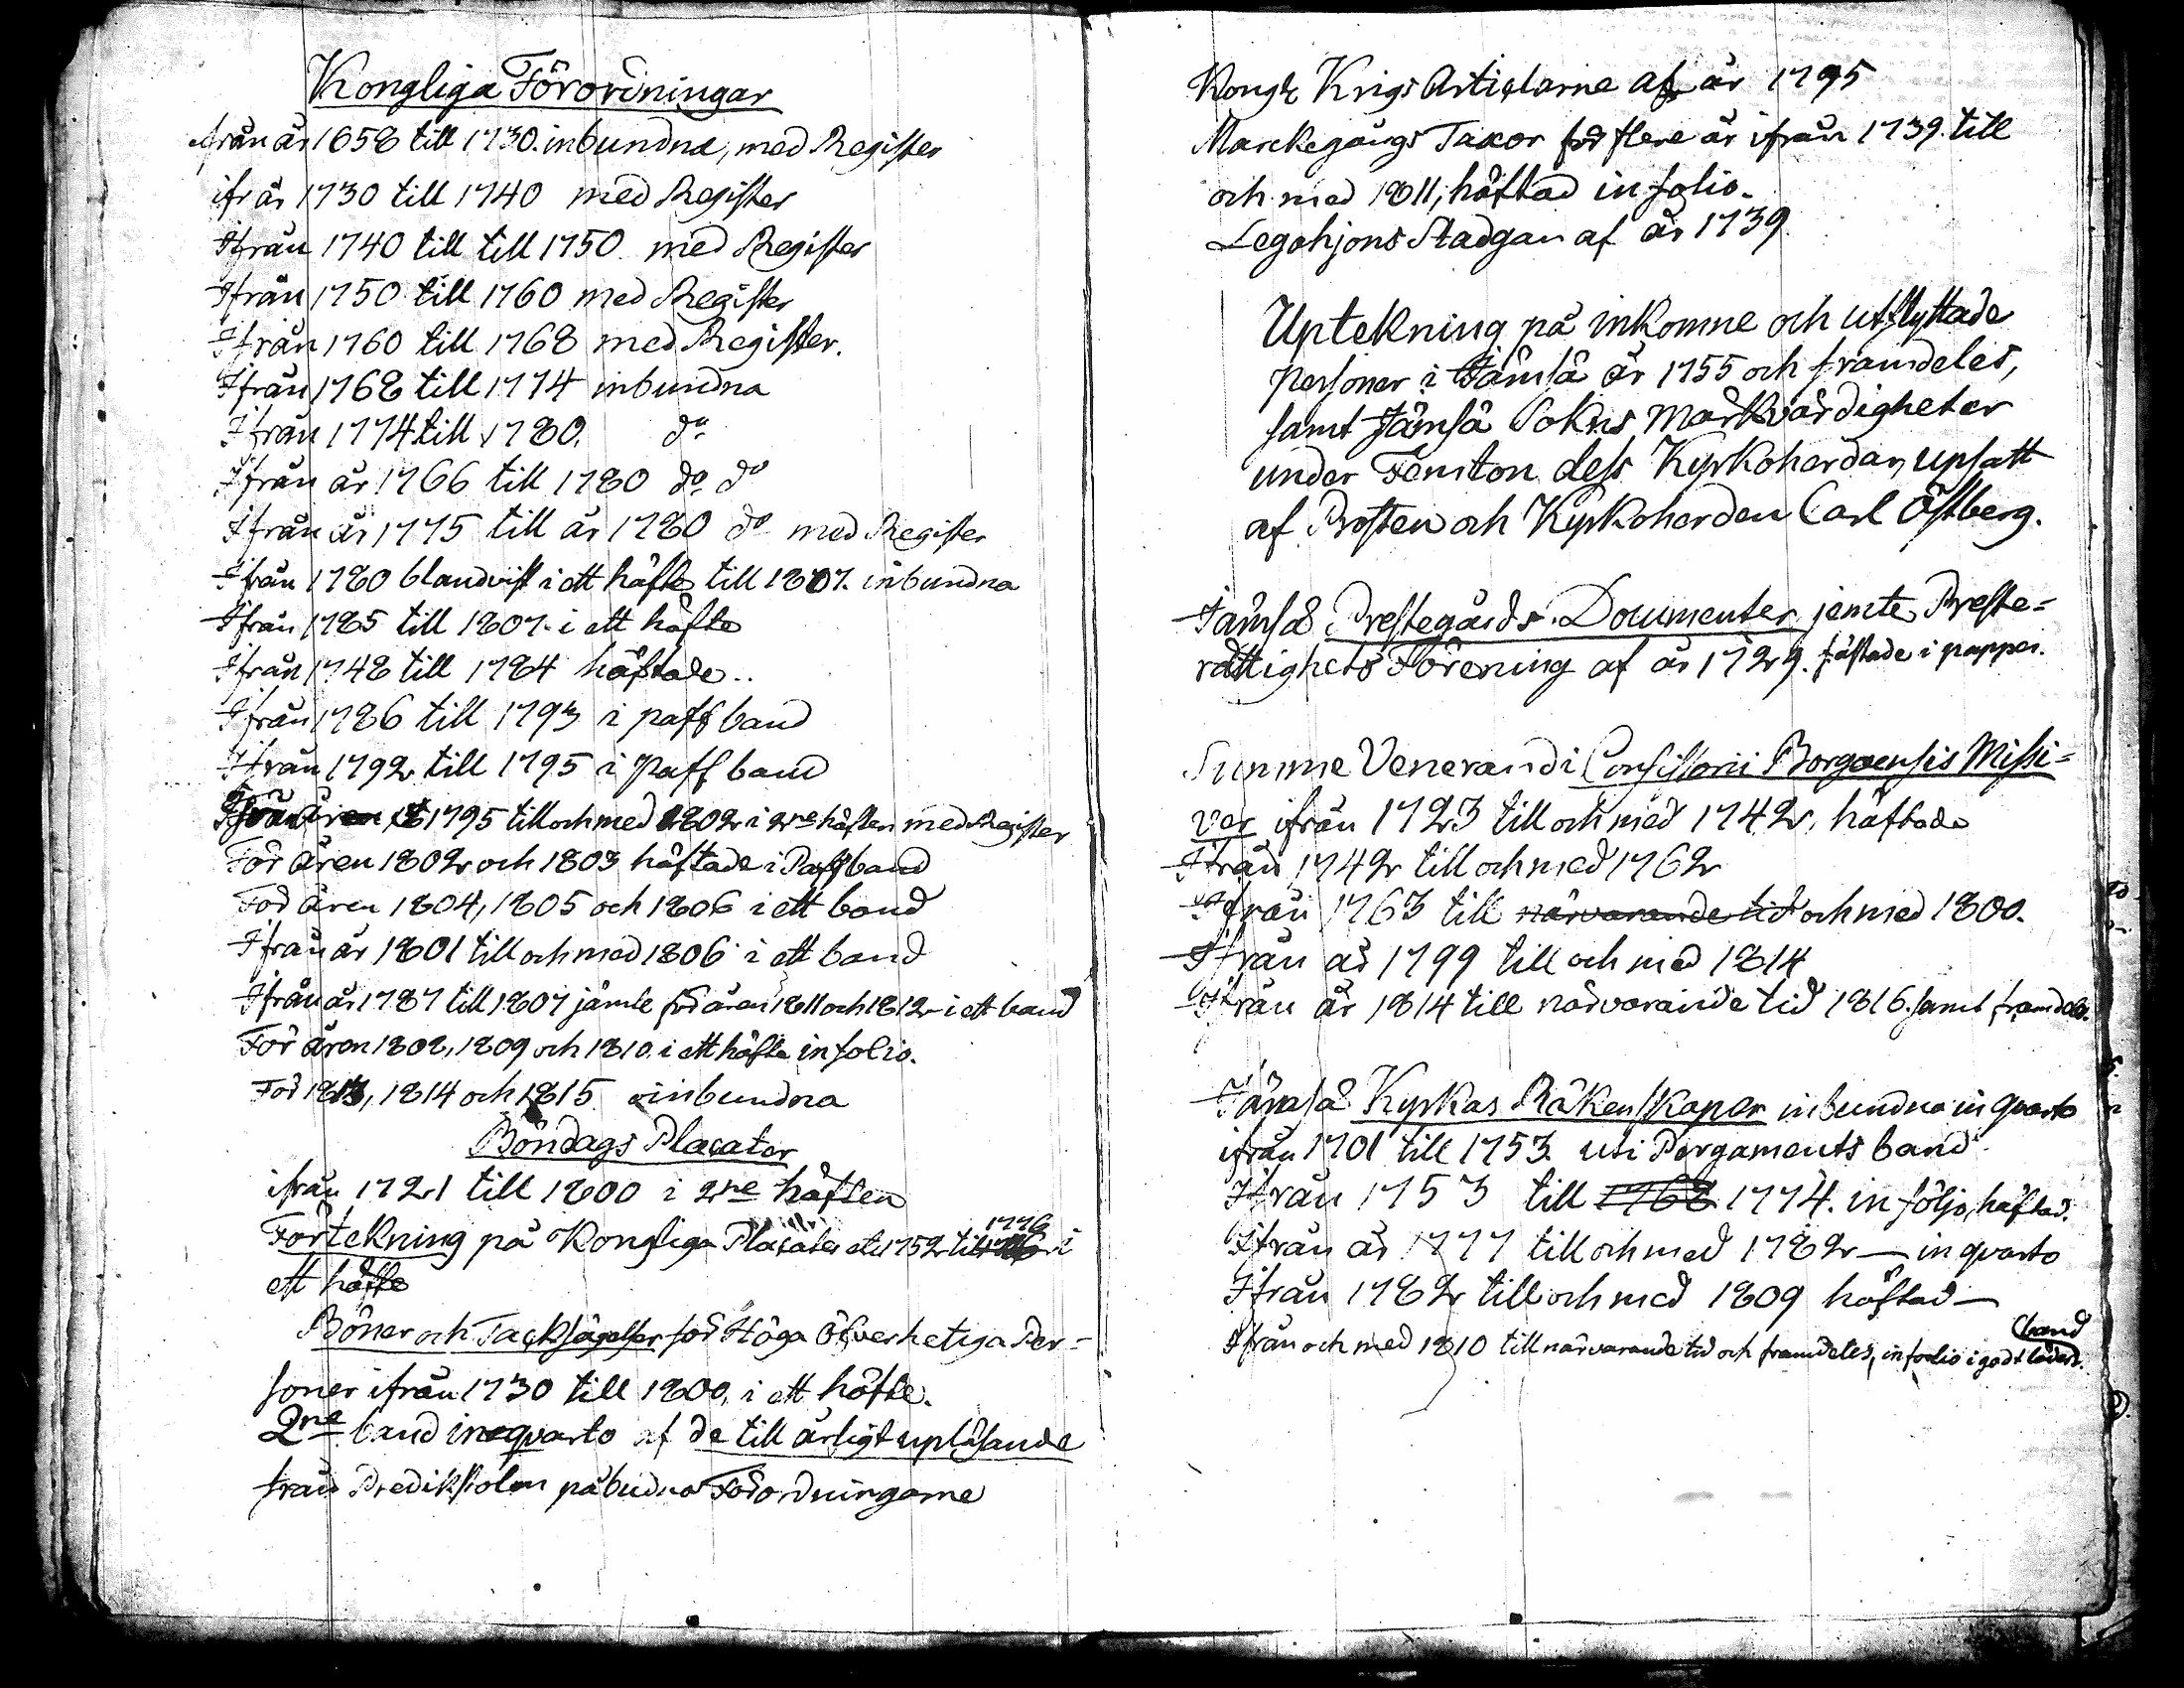 Kongliga Förordningar
ifrån år 1658 till 1730. inbundna, med Register
ifr år 1730 till 1740 med Register
Ifrån 1740 till till 1750 med Register
Ifrån 1750 till 1760 med Register
Ifrån 1760 till 1768 med Register.
Ifrån 1768 till 1774 inbundna
Ifrån 1774 till 1780. do
Ifrån år 1766 till 1780 do do
Ifrån år 1775 till år 1780 do med Register
Ifrån 1780 blandvist i ett häfte till 1807. inbundna
Ifrån 1785 till 1807. i ett häfte
Ifrån 1748 till 1784 häftade..
Ifrån 1786 till 1793 i paff band
Ifrån 1792 till 1795 i Paff band
1795 till och med 1802 i 2ne häften med Register
För åren 1802 och 1803 häftade i Paff band
För åren 1804, 1805 och 1806 i ett band
Ifrån år 1801 till och med 1806 i ett band
Ifrån år 1787 till 1807 jämte för åren 1811 och 1812 i ett band
För åren 1808, 1809 och 1810. i ett häfte in folio.
För 1813, 1814 och 1815 oinbundna
Böndags Placater
ifrån 1721 till 1800 i 2ne häften
Förtekning på Kongliga Placater 1752 till 1776 i
ett häfte
Böner och Tacksägelser för Höga Öfverhetiga Per-
soner ifrån 1730 till 1800, i ett häfte.
2ne band in quarto af de till årligt upläsande
från Predikstolen påbudna Förordningarne
Kongl Krigs Articlarne af år 1795
Marckegångs Taxor för flere år ifrån 1739. till
och med 1811, häftad in folio.
Legohjons Stadgan af år 1739
Uptekning på inkomne och utflyttade
Personer i Jämsä år 1755 och framdeles,
samt Jämsä Sokns Märkvärdigheter
under Femton dess Kyrkoherdar, upsatt
af Prosten och Kyrkoherden Carl Östberg.
Jämsä Prestegårds Documenter jemte Preste-
rättighets Förening af år 1729. häftade i papper.
Summe Venerandi Consistorii Borgoensis Missi-
ver ifrån 1723 till och med 1742, häftade
Ifrån 1742 till och med 1762
Ifrån 1763 till närvarande tid och med 1800.
Ifrån år 1799 till och med 1814
Ifrån år 1814 till närvarande tid 1816. samt framdeles.
Jämsä Kyrkas Räkenskaper inbundna in quarto
ifrån 1701 till 1753. uti Pergaments band
Ifrån 1753 till 1768 1774. in folio, häftad.
Ifrån år 1777 till och med 1782 — in quarto
Ifrån 1782 till och med 1809 häftad —
Ifrån och med 1810 till närvarande tid och framdeles, in folio i godt läder
band